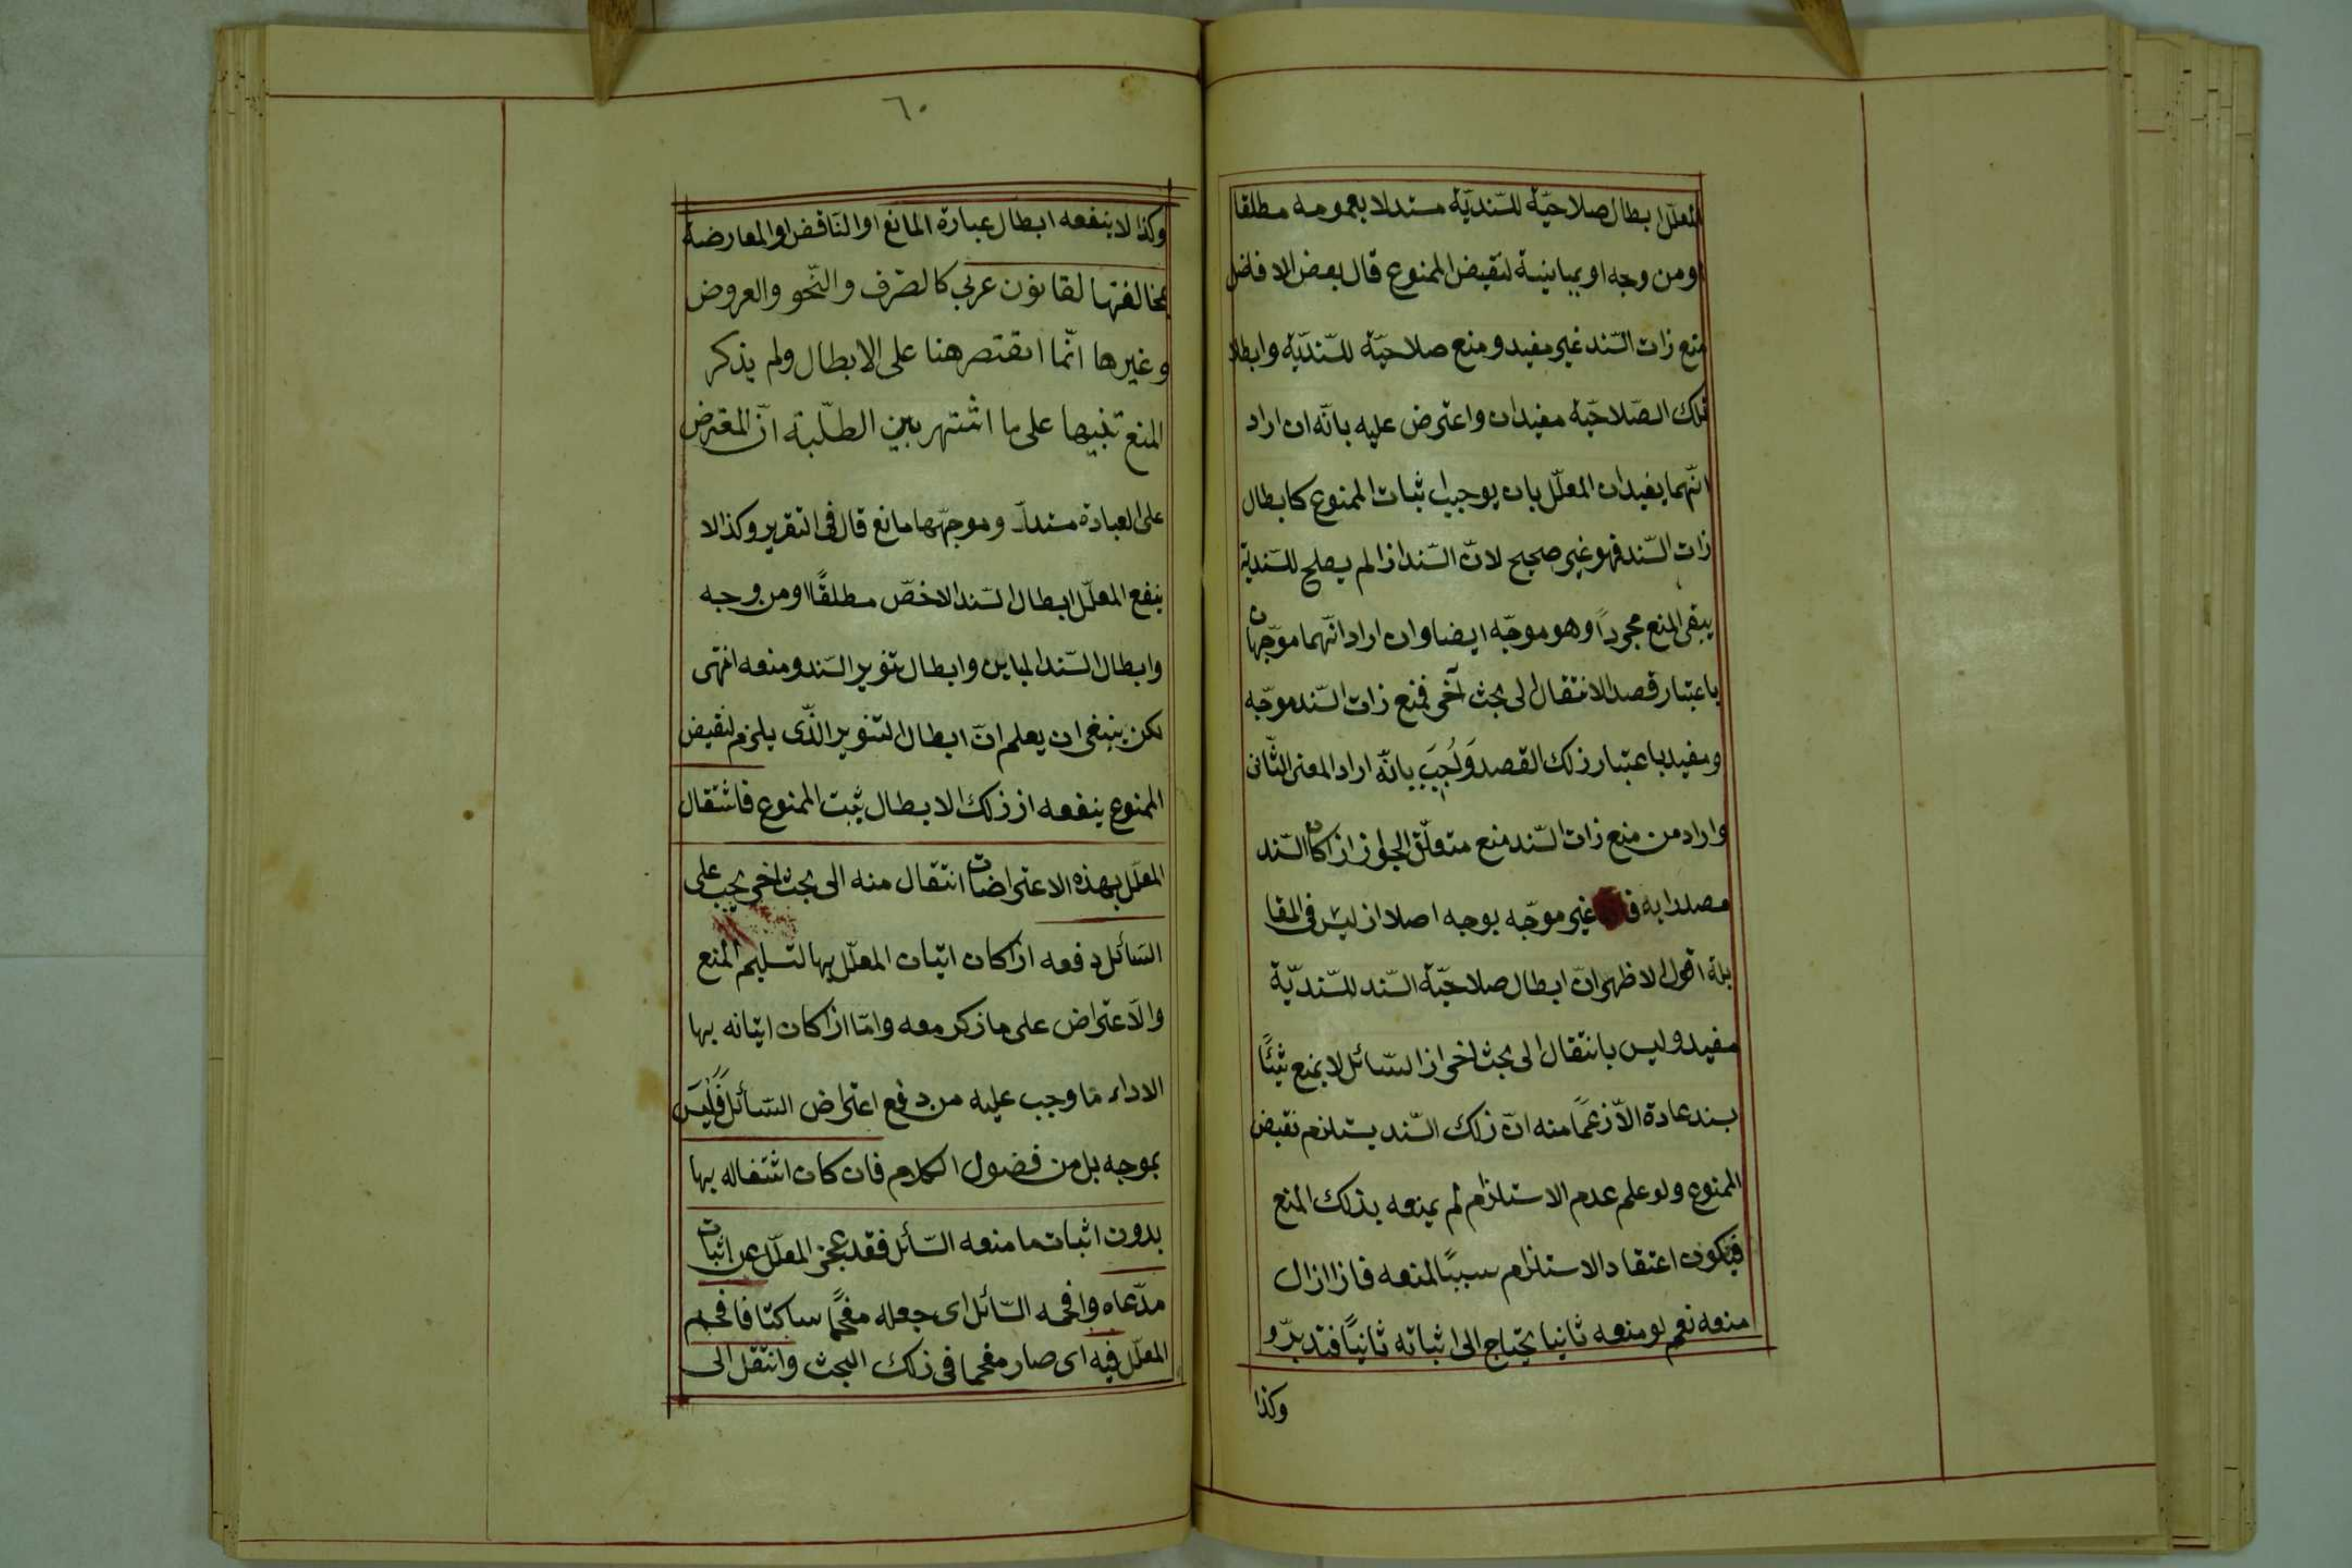 المعلل ابطال صلاحيّة للسّنديّة مستدلا بعمومه مطلقا
او من وجه او بمباينية لنقيض الممنوع قال بعض الافاضل
منع ذات السّند غير مفيد ومنع صلاحيّة للسّنديّة وابطال
تلك الصّلاحيّة مفيدان واعترض عليه بانّه ان اراد
انّهما يفيدان المعلّل بان يوجب اثبات الممنوع كابطال
ذات السّند فهو غير صحيح لانّ السّند اذا لم يصلح للسّندية
يبقى المنع مجرداً وهو موجّه ايضا وان اراد انّهما موجّهان
باعتبار قصد الانتقال الى بحث آخر فمنع ذات السّند موجّه
ومفيد باعتبار ذلك القصد وَاُجيبَ بانّه اراد المعنى الثّانى
واراد من منع ذات السّند منع متعلّق الجواز اذا كان السّند
مصدرا به غير موجّه بوجه اصلا اذ ليس فى المقا
بلة اقول الاظهر انّ ابطال صلاحيّة السّند للسّنديّة
مفيد وليس بانتقال الى بحث آخر اذ السّائل لا يمنع شيئًا
بسند عادة الاّ زعمًا منه انّ ذلك السّند يستلزم نقيض
الممنوع ولو علم عدم الاستلزام لم يمنعه بذلك المنع
فيكون اعتقاد الاستلزام سببًا لمنعه فاذا زال
منعه نعم لو منعه ثانيا يحتاج الى اثباته ثانيًا فتدبّر و
وكذا
٦٠
وكذا لا ينفعه ابطال عبارة المانع او النّاقض او المعارضة
بمخالفتها لقانون عربي كالصّرف والنّحو والعروض
وغيرها انّما اقتصر هنا على الابطال ولم يذكر
المنع تنبيها على ما اشتهر بين الطّلبة انّ المعترض
على العبارة مستدلّ وموجّهها مانع قال فى التقرير وكذا لا
ينفع المعلّل ابطال السّند الاخصّ مطلقًا او من وجه
وابطال السّند المباين وابطال تنوير السّند ومنعه انتهى
لكن ينبغى ان يعلم انّ ابطال التنوير الذّى يلزم لنقيض
الممنوع ينفعه اذ ذلك الابطال يثبت الممنوع فاشتغال
المعلّل بهذه الاعتراضات انتقال منه الى بحث آخر يجب على
السّائل دفعه اذا كان اتيان المعلّل بها لتسليم المنع
والاعتراض على ما ذكر معه وامّا اذا كان اتيانه بها
الاداء ما وجب عليه من دفع اعتراض السّائل فَلَيسَ
بموجه بل من فضول الكلام فان كان اشتغاله بها
بدون اثبات ما منعه السّائل فقد عجز المعلّل عن اثبات
مدّعاه وافحمه السّائل اى جعله مفحمًا ساكتا فافحم
المعلّل فيه اى صار مفحما فى ذلك البحث وانتقل الى